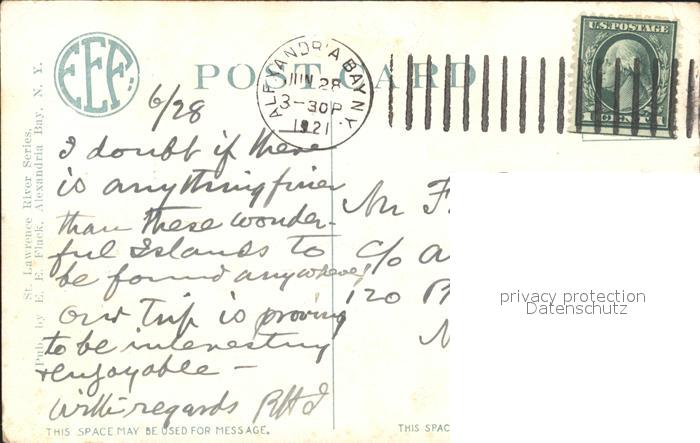 EEF
POST CARD
ALEXANDRIA BAY N.Y.
JUN 28
3-30P
1921
U.S. POSTAGE
1 CENT 1
St. Lawrence River Series.
Pub. by E. E. Fluck, Alexandria Bay, N. Y.
6/28
I doubt if there
is anything finer
than these wonder-
ful Islands to
be found anywhere!
Our trip is proving
to be interesting
+ enjoyable —
With regards
THIS SPACE MAY BE USED FOR MESSAGE.
Mr F.
c/o a
120
N
THIS SPAC
privacy protection
Datenschutz